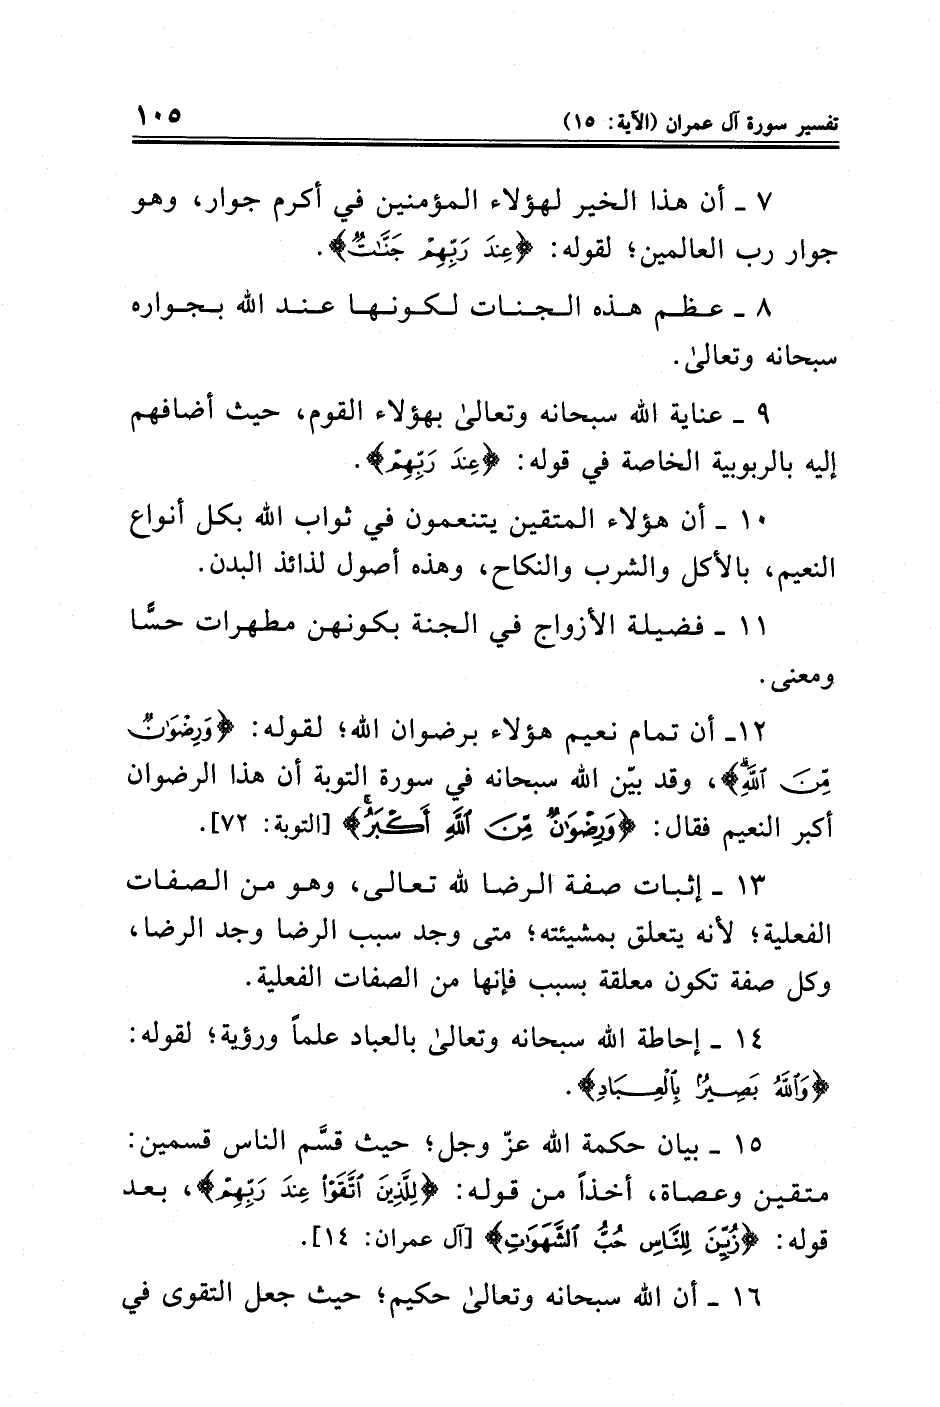 تفسير سورة آل عمران (الآية: ١٥) ١٠٥
٧ ـ أن هذا الخير لهؤلاء المؤمنين في أكرم جوار، وهو
جوار رب العالمين؛ لقوله: ﴿عِندَ رَبِّهِمْ جَنَّٰتٌ﴾.
٨ ـ عظم هذه الجنات لكونها عند الله بجواره
سبحانه وتعالىٰ.
٩ ـ عناية الله سبحانه وتعالىٰ بهؤلاء القوم، حيث أضافهم
إليه بالربوبية الخاصة في قوله: ﴿عِندَ رَبِّهِمْ﴾.
١٠ ـ أن هؤلاء المتقين يتنعمون في ثواب الله بكل أنواع
النعيم، بالأكل والشرب والنكاح، وهذه أصول لذائذ البدن.
١١ ـ فضيلة الأزواج في الجنة بكونهن مطهرات حسًّا
ومعنى.
١٢ـ أن تمام نعيم هؤلاء برضوان الله؛ لقوله: ﴿وَرِضْوَٰنٌ
مِّنَ ٱللَّهِۗ﴾، وقد بيّن الله سبحانه في سورة التوبة أن هذا الرضوان
أكبر النعيم فقال: ﴿وَرِضْوَٰنٌ مِّنَ ٱللَّهِ أَكْبَرُۚ﴾ [التوبة: ٧٢].
١٣ ـ إثبات صفة الرضا لله تعالى، وهو من الصفات
الفعلية؛ لأنه يتعلق بمشيئته؛ متى وجد سبب الرضا وجد الرضا،
وكل صفة تكون معلقة بسبب فإنها من الصفات الفعلية.
١٤ ـ إحاطة الله سبحانه وتعالىٰ بالعباد علماً ورؤية؛ لقوله:
﴿وَٱللَّهُ بَصِيرٌۢ بِٱلْعِبَادِ﴾.
١٥ ـ بيان حكمة الله عزّ وجل؛ حيث قسَّم الناس قسمين:
متقين وعصاة، أخذاً من قوله: ﴿لِلَّذِينَ ٱتَّقَوْا۟ عِندَ رَبِّهِمْ﴾، بعد
قوله: ﴿زُيِّنَ لِلنَّاسِ حُبُّ ٱلشَّهَوَٰتِ﴾ [آل عمران: ١٤].
١٦ ـ أن الله سبحانه وتعالىٰ حكيم؛ حيث جعل التقوى في